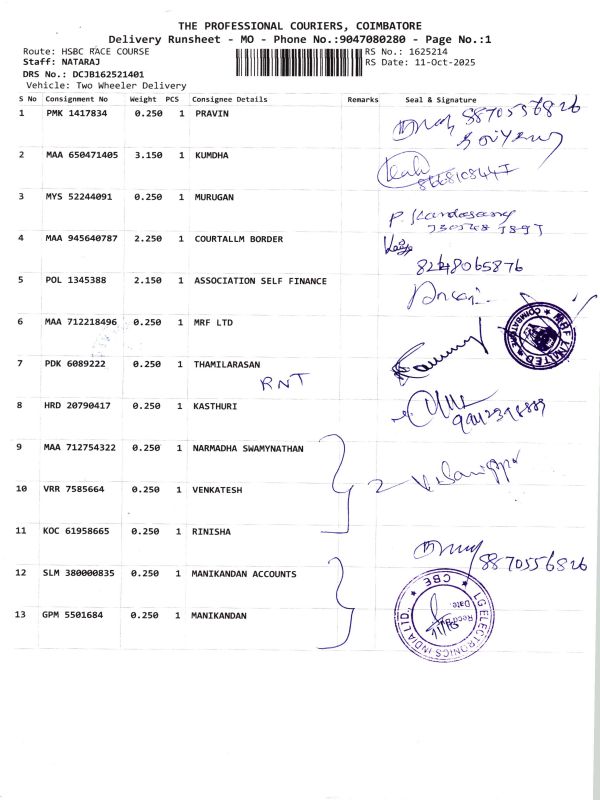 THE PROFESSIONAL COURIERS, COIMBATORE
Delivery Runsheet - MO - Phone No.:9047080280 - Page No.:1
Route: HSBC RACE COURSE
RS No.: 1625214
Staff: NATARAJ
RS Date: 11-Oct-2025
DRS No.: DCJB162521401
Vehicle: Two Wheeler Delivery
S No Consignment No Weight PCS Consignee Details Remarks Seal & Signature
1 PMK 1417834 0.250 1 PRAVIN
2 MAA 650471405 3.150 1 KUMDHA
3 MYS 52244091 0.250 1 MURUGAN
4 MAA 945640787 2.250 1 COURTALLM BORDER
8248065876
5 POL 1345388 2.150 1 ASSOCIATION SELF FINANCE
6 MAA 712218496 0.250 1 MRF LTD
MRF LIMITED
COIMBATORE
7 PDK 6089222 0.250 1 THAMILARASAN
RNT
8 HRD 20790417 0.250 1 KASTHURI
9 MAA 712754322 0.250 1 NARMADHA SWAMYNATHAN
10 VRR 7585664 0.250 1 VENKATESH
11 KOC 61958665 0.250 1 RINISHA
8870556826
12 SLM 380000835 0.250 1 MANIKANDAN ACCOUNTS
13 GPM 5501684 0.250 1 MANIKANDAN
LG ELECTRONICS INDIA LTD.,
CBE
Recd By
Date